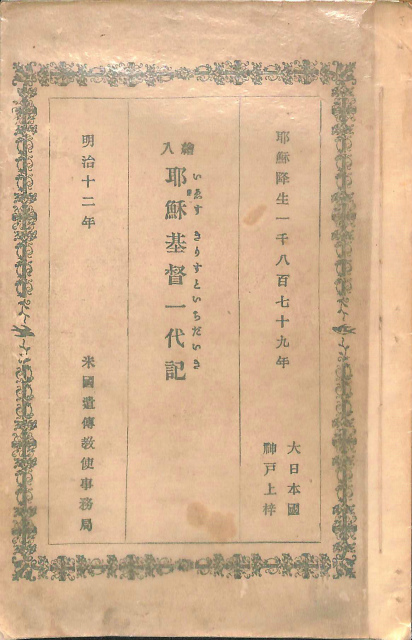 耶穌降生一千八百七十九年
大日本國
神戸上梓
繪入
耶穌基督一代記
いゑす きりすといちだいき
明治十二年
米國遣傳教使事務局